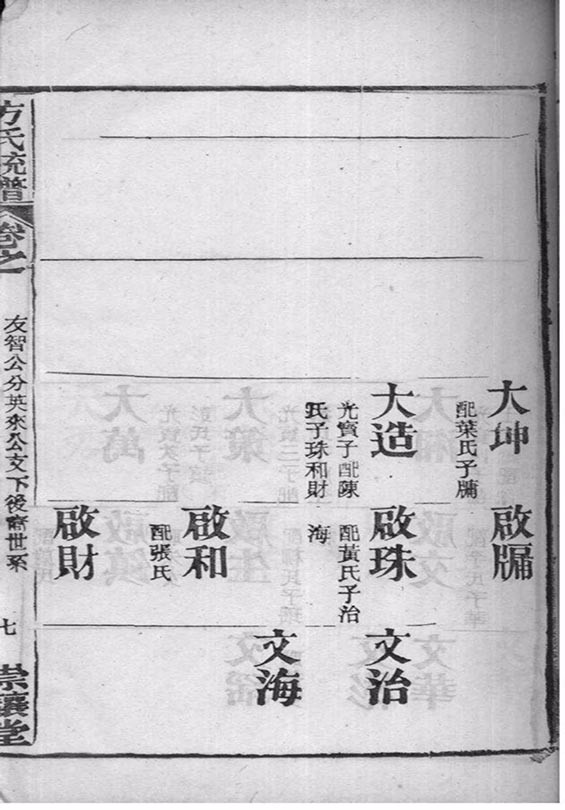 大坤
配葉氏子牗
啟牗
大造
光寶子配陳
氏子珠和財
啟珠
配黃氏子治
海
文治
啟和
配張氏
文海
啟財
方氏統譜
卷之一
友智公分英來公支下後裔世系
七
崇讓堂